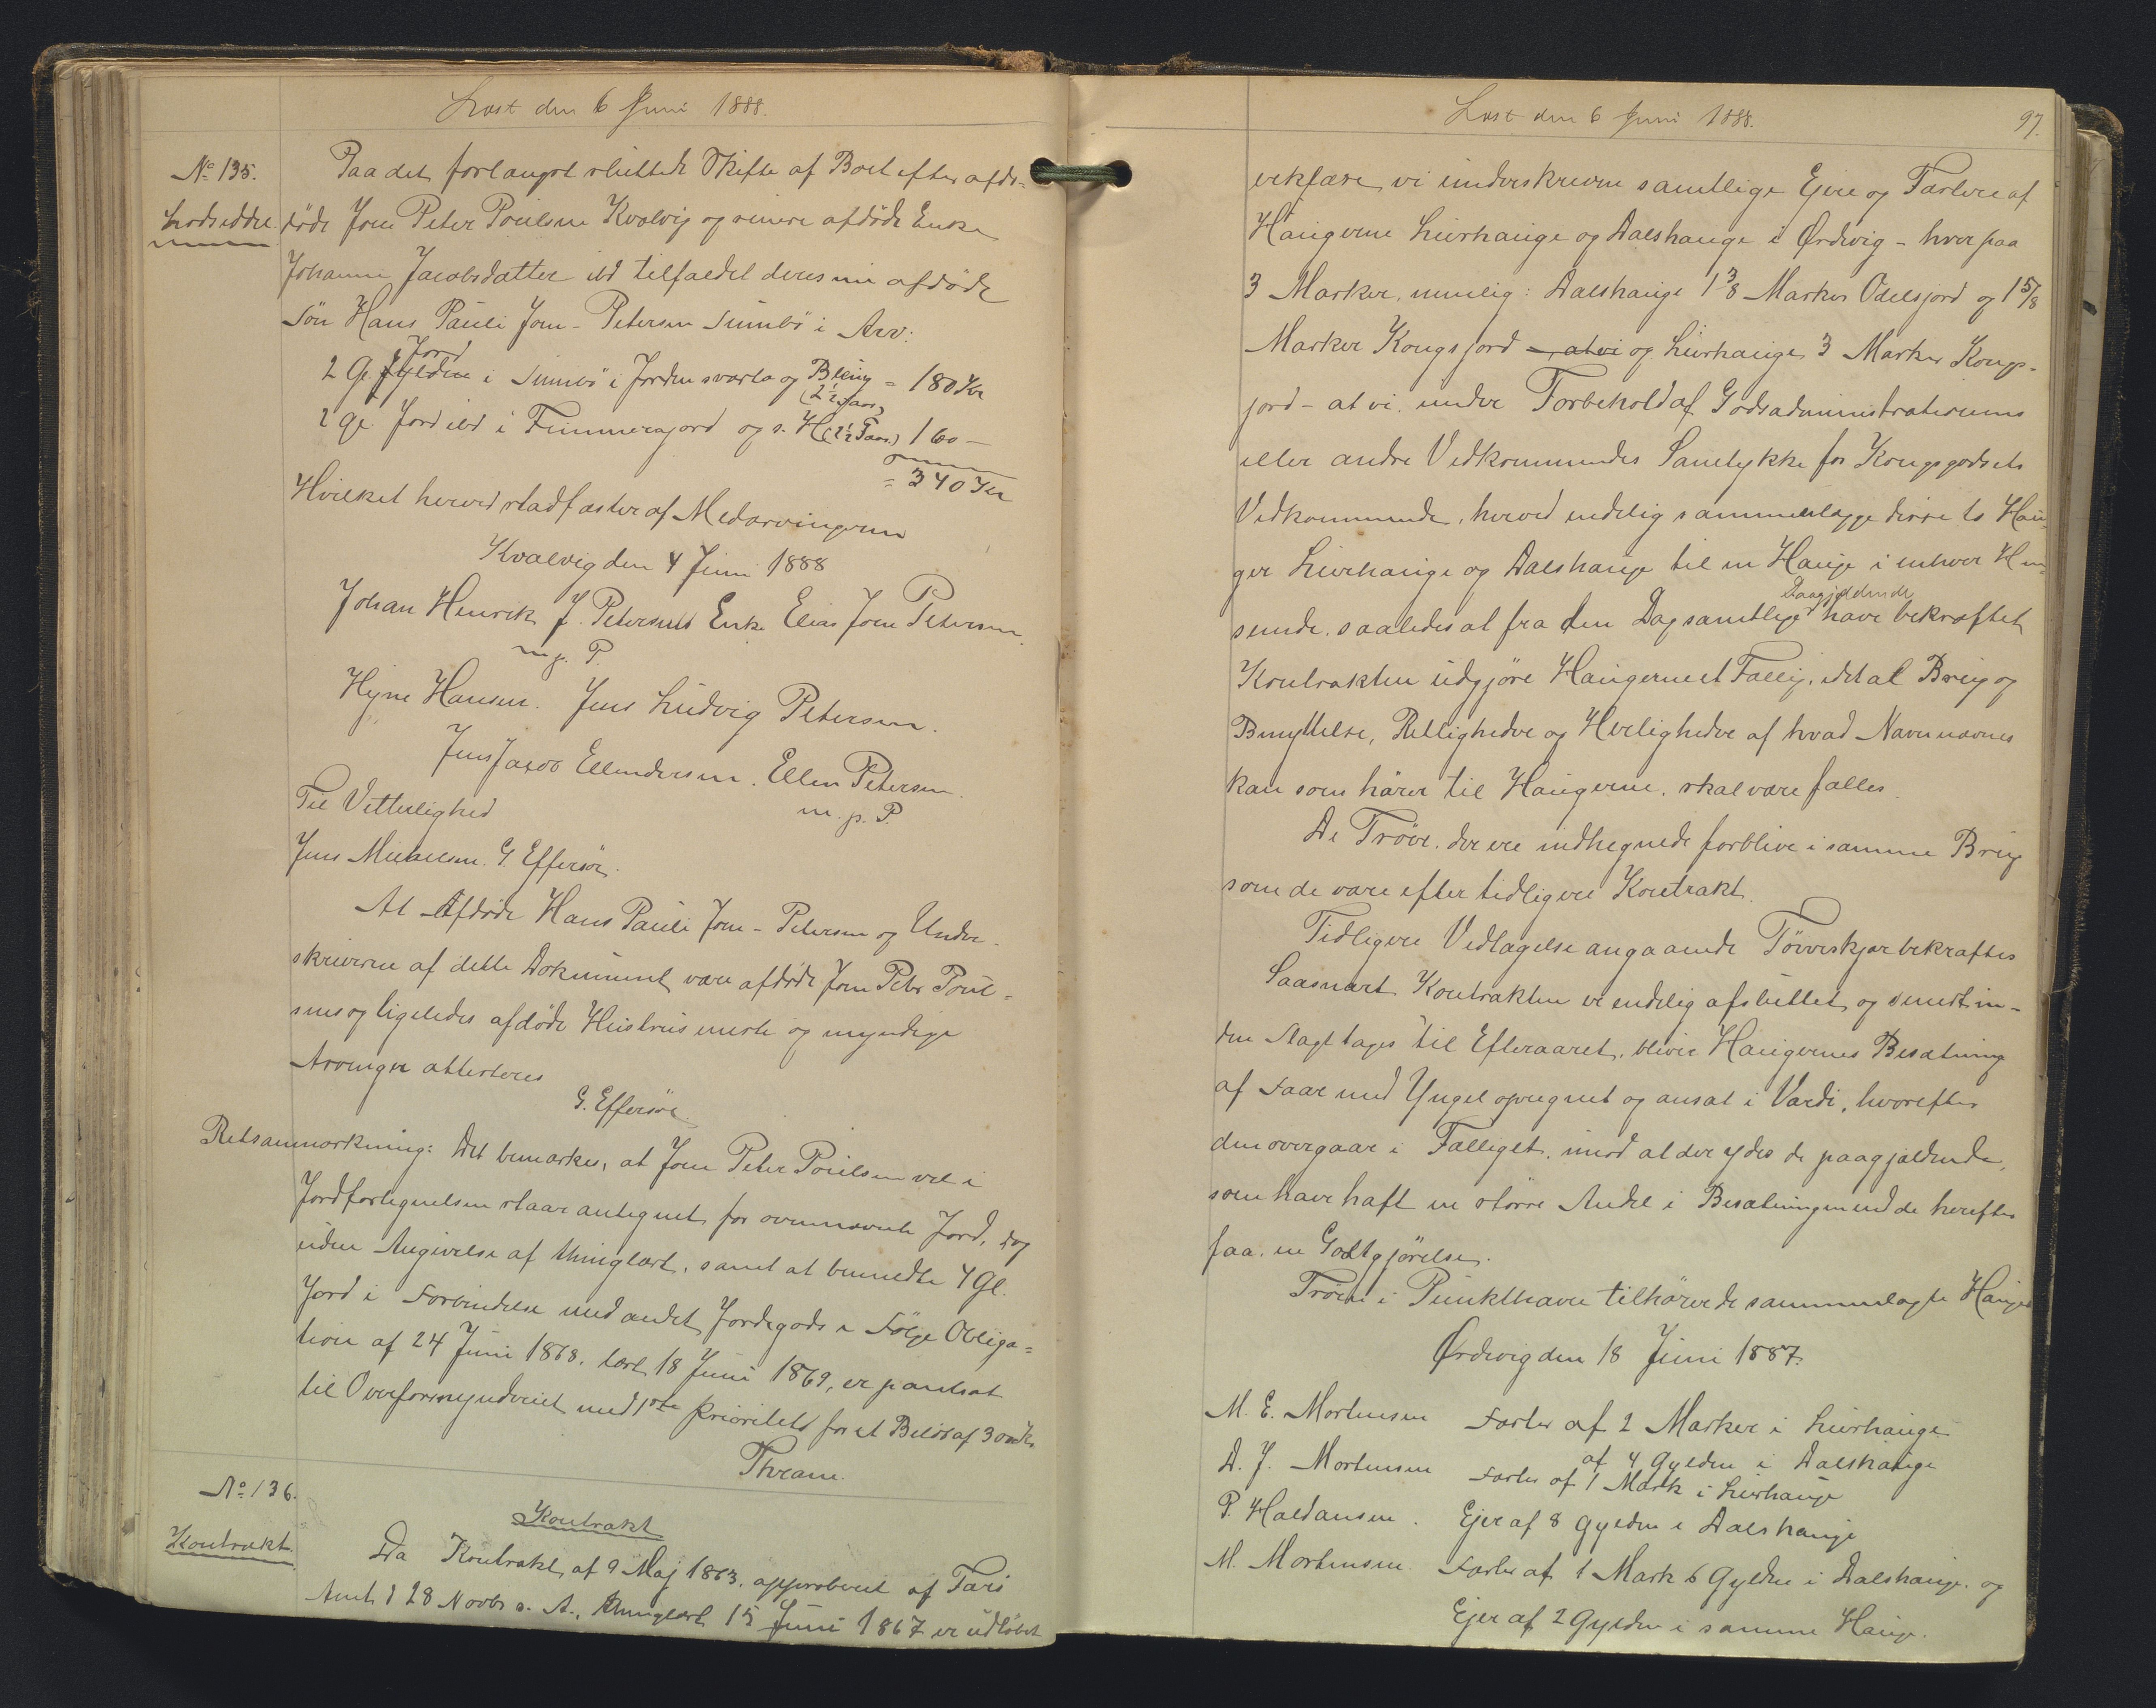 Læst den 6 Juni 1888.
No 135.
Lodseddel.
Paa det forlangst sluttede Skifte af Boet efter afdø-
døde Joen Peter Poulsen Kvalvig og senere afdøde Enke
Johanne Jacobsdatter ibd tilfaldet deres nu afdøde
Søn Hans Pauli Joen-Petersen Sumbø i Arv:
2 Gl Jord Gylden i Sumbø i Jorden svarta og = 180 Kr
2 Gl. Jord ibd i og s. H (2½ Faar) 160 -
= 340 Kr
Hvilket herved stadfæster af Medarvingerne
Kvalvig den 4 Juni 1888
Johan Henrik J. Petersens Enke Elias Joen Petersen.
m. p. P.
Hansen. Jens Ludvig Petersen.
Jens Jacob Ellendersen. Ellen Petersen.
m. p. P.
Til Vitterlighed
Jens Mickelsen. G. Effersøe.
At Afdøde Hans Pauli Joen-Petersen og Under-
skriverne af dette Dokument vare afdøde Joen Peter Poul-
sens og ligeledes afdøde Hustrus eneste og myndige
Arvinger attesteres
G. Effersøe.
Retsanmærkning: Det bemærkes, at Joen Peter Poulsen vel i
Jordfortegnelsen staar antegnet for ovennævnte Jord, dog
uden Angivelse af thinglæst, samt at bemeldte 4 Gl.
Jord i Forbindelse med andet Jordegods i Følge Obliga-
tion af 24 Juni 1868, læst 18 Juni 1869, er pantsat
til Overformynderiet med 1ste Prioritet for et Beløb af
Threane.
No 136.
Kontrakt.
Kontrakt
Da Kontrakt af 9 Maj 1863, approberet af Færø
Amt d 28 Novbr s. A., thinglæst 15 Juni 1867 er udløbet
Læst den 6 Juni 1888.
97.
erklære vi underskrevne samtlige Ejere og Fæstere af
Haugerne Lierhauge og Dalshauge i Ørdevig - hver paa
3 Marker, nemlig: Dalshauge 1 3/8 Marker Odelsjord og 1 5/8
Marker Kongsjord - at vi og Lierhauge 3 Marker Kongs-
jord - at vi under Forbehold af Godsadministrationens
eller andre Vedkommendes Samtykke for Kongsgodsets
Vedkommende, herved endelig sammenlægge disse to Hau-
ger Lierhauge og Dalshauge til en Hauge i enhver Hen-
seende, saaledes at fra den Dag samtlige Paagjældende have bekræftet
Kontrakten udgjøre Haugerne et Fællig, idet al Brug og
Benyttelse, Rettigheder og Herligheder af hvad Navn nævnes
kan som hører til Haugerne, skal være fælles.
De Trøer, der ere indhegnede forblive i samme Brug
som de vare efter tidligere Kontrakt.
Tidligere Vedtagelse angaaende Tørveskjær bekræftes
Saasnart Kontrakten er endelig afsluttet og senest in-
den Slagt tages til Efteraaret, bliver Haugernes Besætning
af Faar med Yngel opregnet og ansat i Værdi, hvorefter
den overgaar i Fælliget, imod at der ydes de paagjældende,
som have haft en større Andel i Besætningen end de herefter
faa, en Godtgjørelse.
i tilhører de sammenlagte Hauger
Ørdevig den 18 Juni 1887.
M. E. Mortensen Fæster af 2 Marker i Lierhauge
af 4 Gylden i Dalshauge
D. J. Mortensen Fæster af 1 Mark i Lierhauge
P. Haldansen. Ejer af 8 Gylden i Dalshauge
M. Mortensen Fæster af 1 Mark 6 Gylden i Dalshauge, og
Ejer af 2 Gylden i samme Hauge.